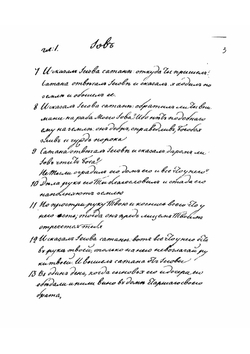 гл. 1. Іовъ 3
7 И сказалъ Іегова сатанѣ: откуда ты пришелъ?
Сатана отвѣчалъ Іеговѣ и сказалъ: я ходилъ по
землѣ и обошелъ ее.
8 И сказалъ Іегова сатанѣ: обратилъ ли ты вни
маніе на раба Моего Іова? Ибо нѣтъ подобнаго
ему на землѣ:
9 Сатана отвѣчалъ Іеговѣ и сказалъ: даромъ ли
Іовъ чтитъ Бога?
Не Ты ли оградилъ его домъ его и все что у него?
10 Дѣла рукъ его Ты благословилъ и стада его
11 Но простри руку Твою и коснись всего что у
него
12 И сказалъ Іегова сатанѣ: вотъ все что у него
въ рукѣ твоей, только на него не полагай ру
ки твоей. И вышелъ сатана
13 Въ одинъ день, когда сыновья его и дочери его
обѣдали и пили вино въ домѣ
брата,